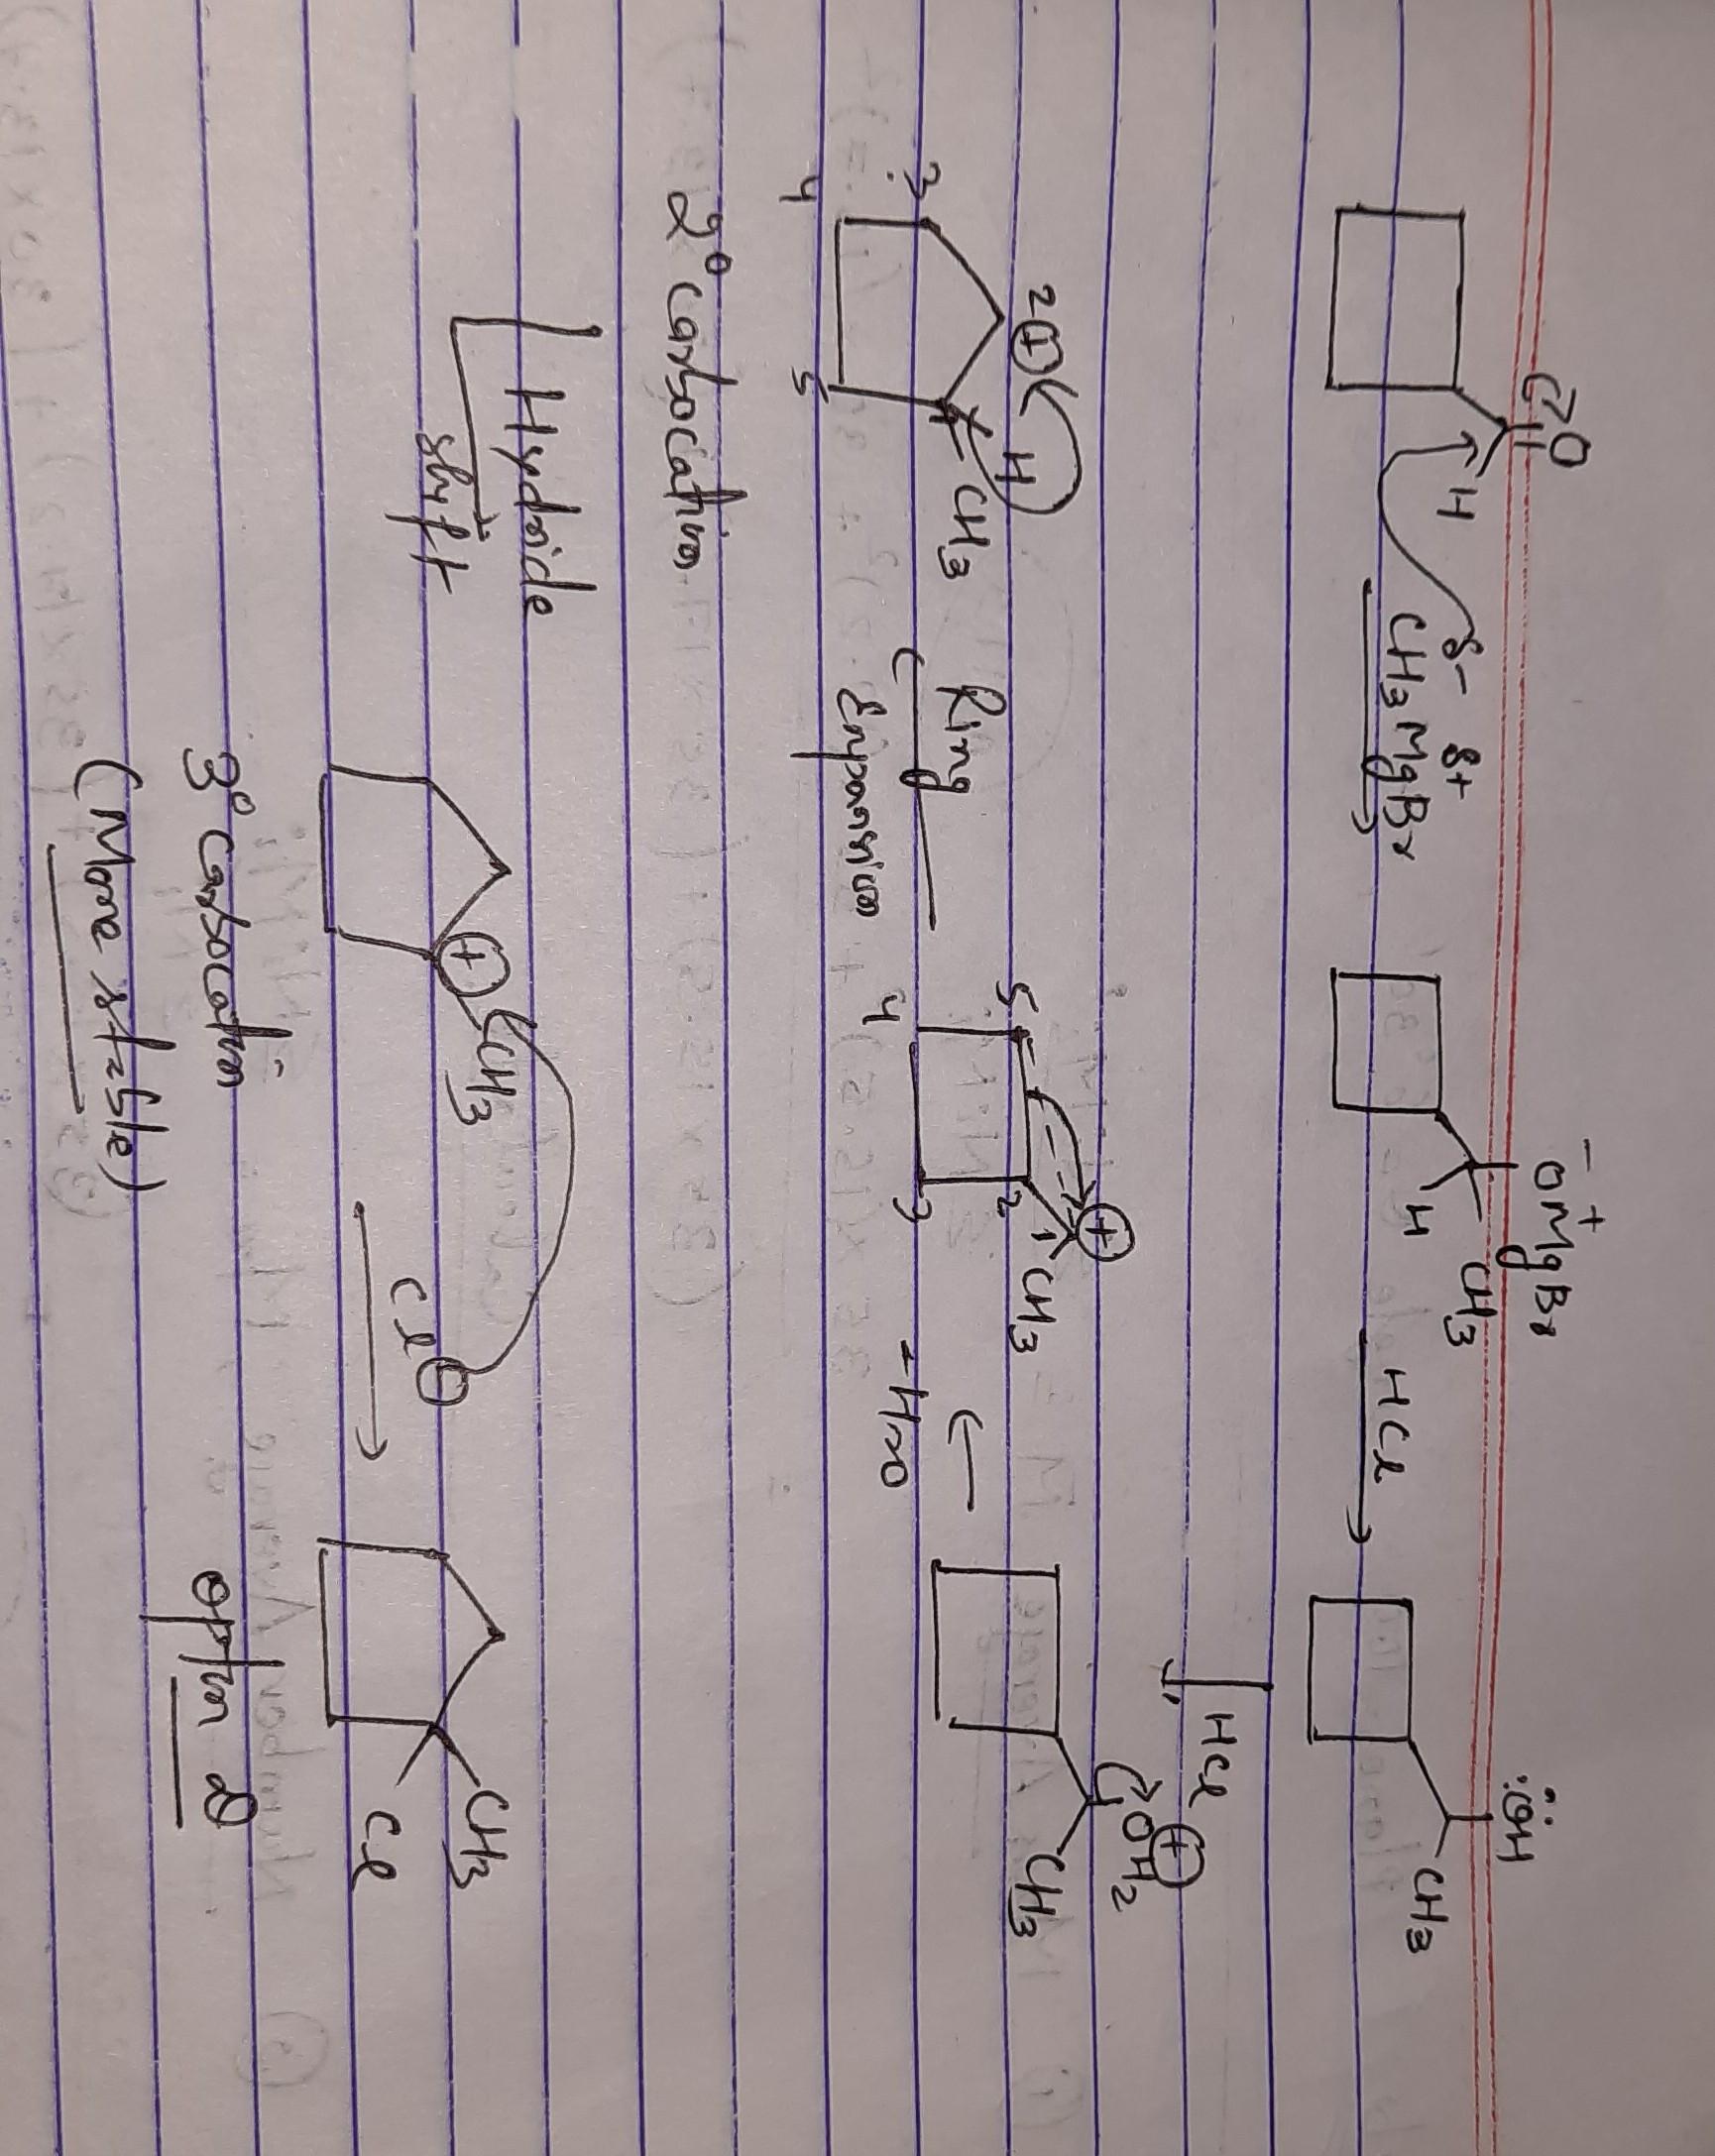 O
H
δ- δ+
CH3MgBr
- +
OMgBr
CH3
H
HCl
:ÖH
CH3
HCl
⊕
OH2
CH3
-H2O
⊕
CH3
1
2
3
4
5
Ring
Expansion
2 ⊕
H
CH3
1
3
4
5
2° carbocation
Hydride
shift
⊕
CH3
3° carbocation
(More stable)
Cl⊖
CH3
Cl
option D